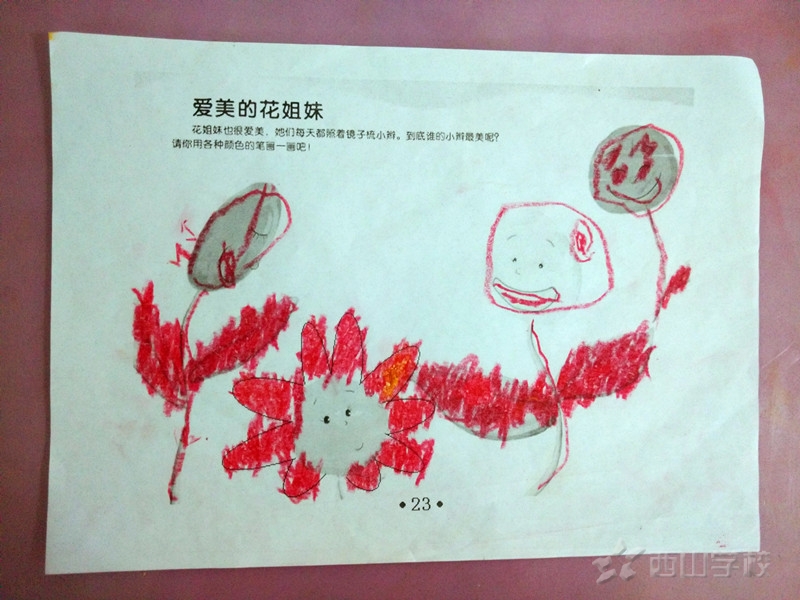 爱美的花姐妹
花姐妹也很爱美，她们每天都照着镜子梳小辫。到底谁的小辫最美呢？
请你用各种颜色的笔画一画吧！
•23•
西山学校